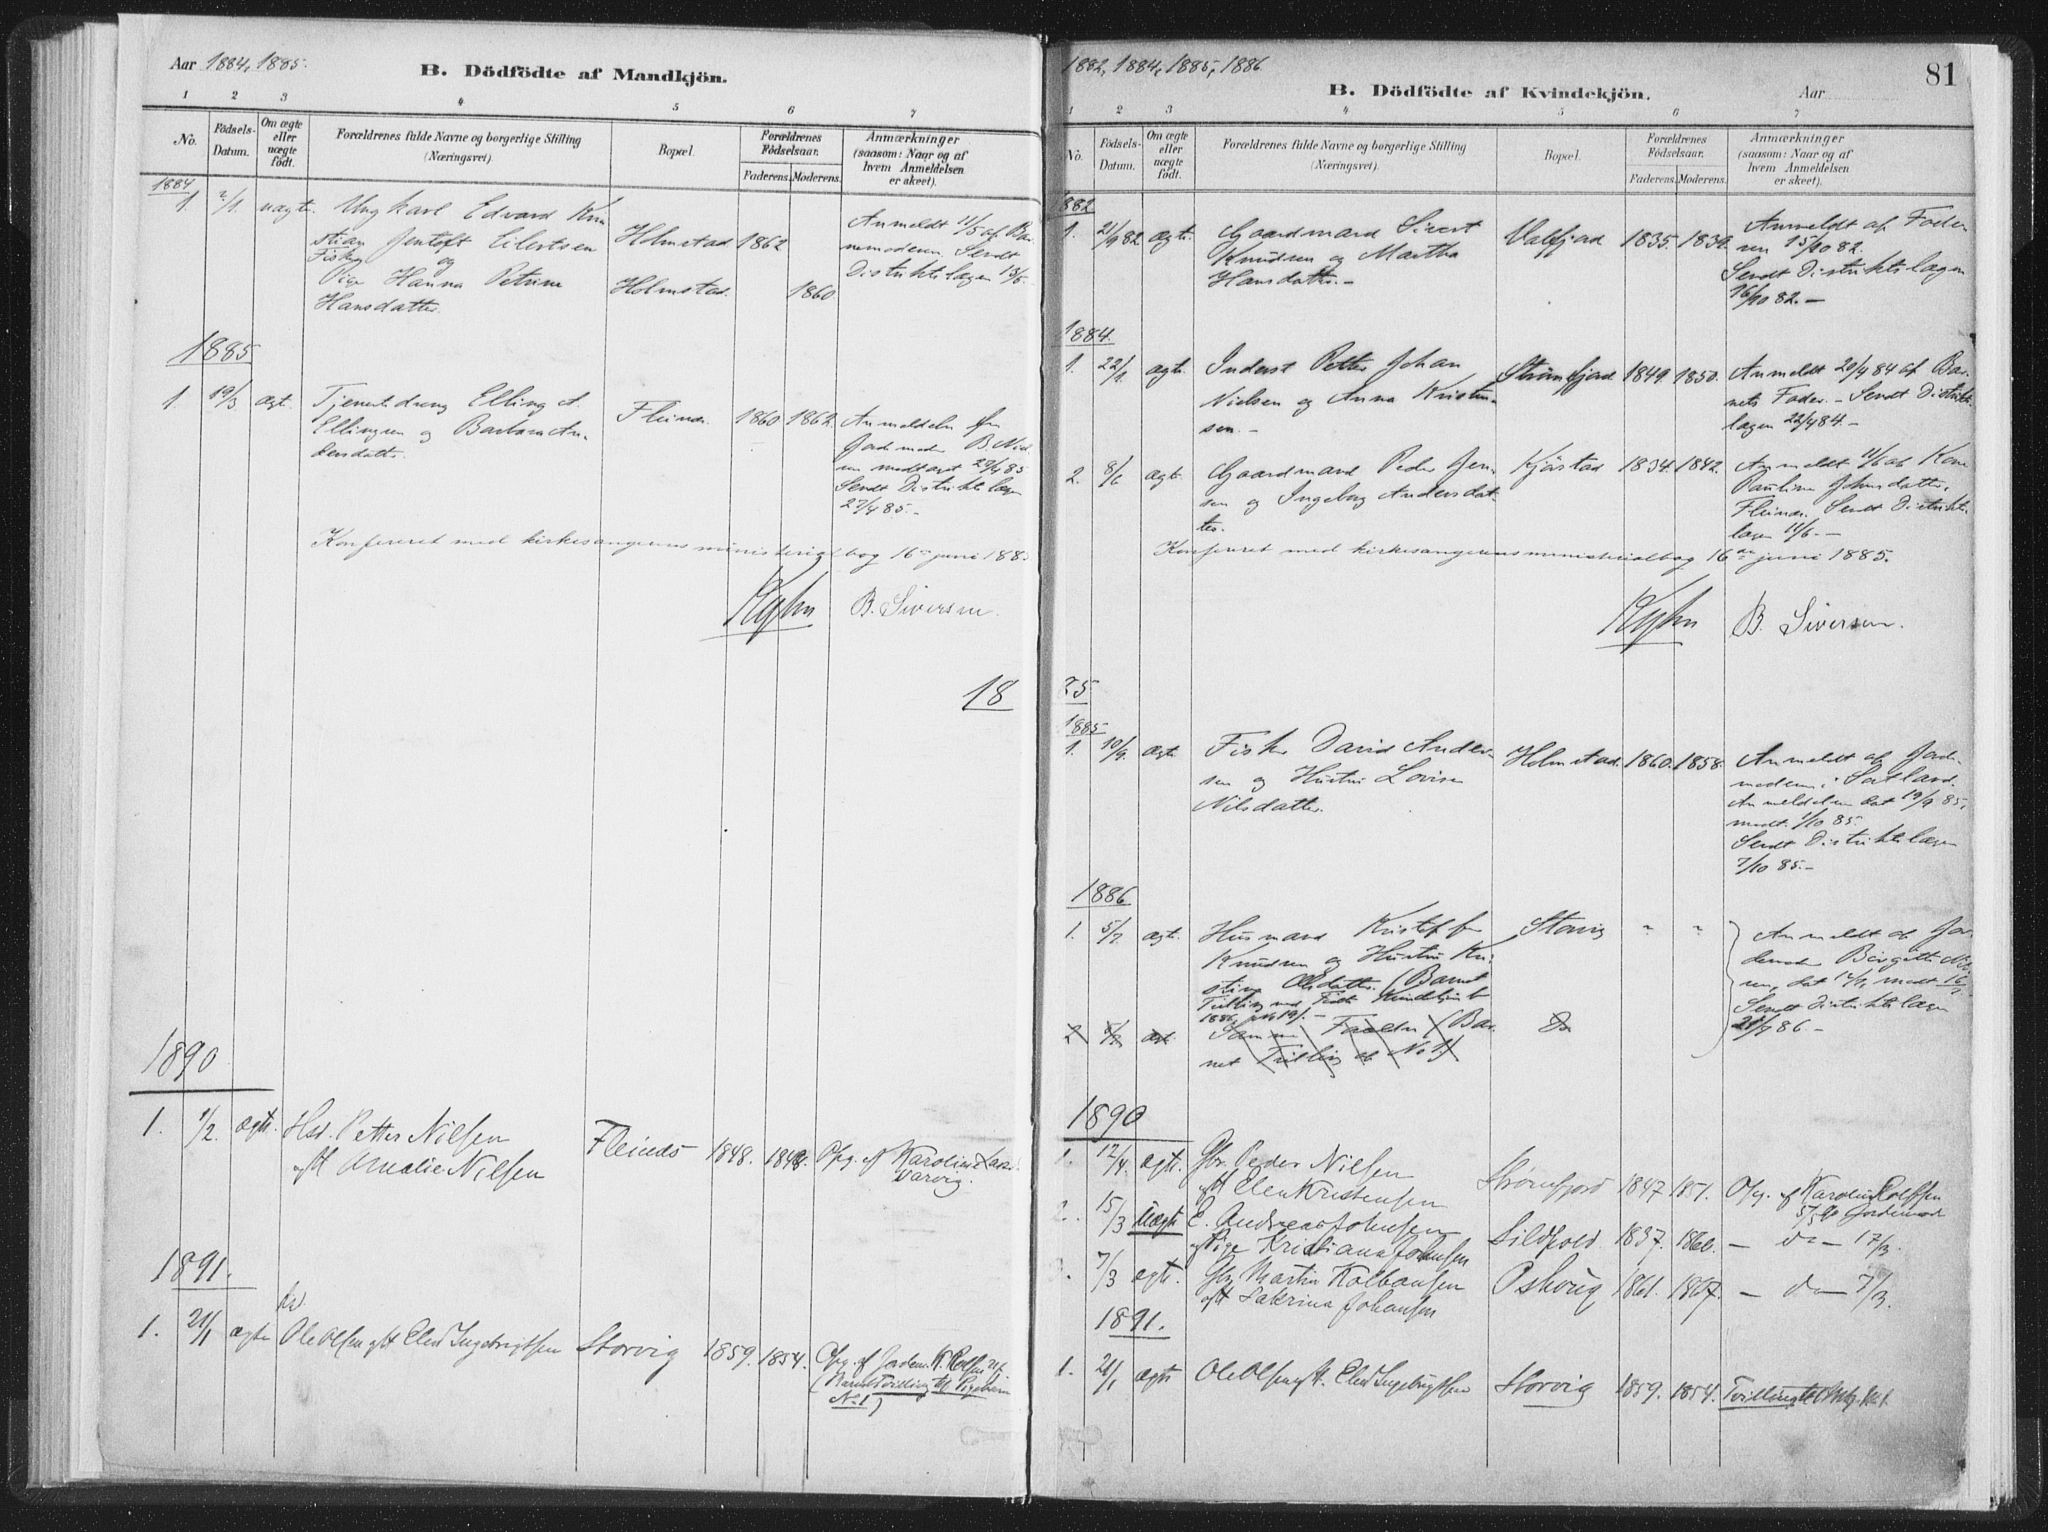 Aar 1884, 1885.
B. Dödfödte af Mandkjön.
1 2 3 4 5 6 7
No.
Födsels-Datum.
Om ægte eller uægte födt.
Forældrenes fulde Navne og borgerlige Stilling
(Næringsvei).
Bopæl.
Forældrenes Födselsaar.
Faderens. Moderens.
Anmærkninger
(saasom: Naar og af
hvem Anmeldelsen
er skeet).
1884
1. 2/1. uægte. Ungkarl Edvard Kri
stian Jentoft Eilertsen
Fisker og
Pige Hanna Petrine
Hansdatter.
Holmstad 1862
Holmstad. 1860
Anmeldt 11/5 af
Sendt
Distriktslægen 13/5.
1885
1 19/3 ægt. Tjenestdreng Elling A.
Ellingsen og Barbara An-
dersdatter.
Fleines. 1860 1862
Anmeldelse fra
Jordmoder B. Niel
sen modtaget 27/4 85
Sendt Distriktslægen
27/4 85.-
Konfereret med kirkesangerens ministerialbog 16de juni 1885
B. Siversen.
18
1890
1. 1/2. ægte. Petter Nilsen
Amalie Nilsen
Fleinds 1848.
Opg. af Karoline
1891.
1. 21/1 ægte Ole Olsen Ingebrigtsen
Storvig 1859. 1854.
Opg. af Jordem. K. Rolfsen
(Barnet Tvilling til Pigebarn
No 1)
1882, 1884, 1885, 1886
81
B. Dödfödte af Kvindekjön.
Aar
1 2 3 4 5 6 7
No.
Födsels-Datum.
Om ægte eller uægte födt.
Forældrenes fulde Navne og borgerlige Stilling
(Næringsvei).
Bopæl.
Forældrenes Födselsaar.
Faderens. Moderens.
Anmærkninger
(saasom: Naar og af
hvem Anmeldelsen
er skeet).
1882
1. 21/9 82 ægte. Gaardmand Sivert
Knudsen og Martha
Hansdatter.-
Valfjord 1835.
Anmeldt af Fade
ren 15/10 82.
Sendt Distriktslægen
16/10 82.-
1884.
1. 22/1. ægte. Inderst Petter Johan
Nielsen og Anna Kristen-
sen.-
Strømfjord 1849. 1850.
Anmeldt 20/4 84 af Bar-
nets Fader.- Sendt Distrikts
lægen 22/4 84.-
2. 8/6 ægte. Gaardmand Peder Jen-
sen og Ingeborg Andersdat-
ter.
Kjørstad 1834. 1842.
Anmeldt 11/6 af Kone
Pauline
Fleines. Sendt Distrikts
lægen 11/6.-
Konfereret med kirkesangerens ministerialbog 16de juni 1885.
B. Siversen.
25
1885
1. 10/9. ægte Fisker David Ander-
sen og Hustru Lovise
Nilsdatter.
Holmstad. 1860. 1858.
Anmeldt af Jord-
moderen i Sortland.
Anmeldelsen dat 19/9 85,
modt. 1/10 85.
Sendt Distriktslægen
7/10 85.-
1886
1. 5/7 ægte. Husmand Kristoffer
Knudsen og Hustru Kri-
stine Olsdatter. (Barnet
Tvilling med Födte Kvindekjön
1886,
Storvig " "
Anmeldt af Jor-
demoder Birgitte Niel
sen, dat modt
Sendt Distriktslægen
86-
2 Samme Forældre (Bar
net Tvilling af No 1)
Do
1890
1. 12/4. ægte. Gbr. Peder Nilsen
Elen Kristensen
Strømfjord 1847 1851.
Opg. af Karoline Rolfsen
Jordemoder
2. 15/3 uægte E. Andreas Johnsen
Pige Kristiana Johnsen
Sildpold. 1837. 1860. - do - 17/3.
3. 7/3 ægte. Gbr Martin Kolbansen
Johansen
Oshoug 1861. 1867. - do - 7/3.
1891.
1. 21/1 ægte Ole Olsen Ingebrigtsen
Storvig 1859. 1854. Tvilling